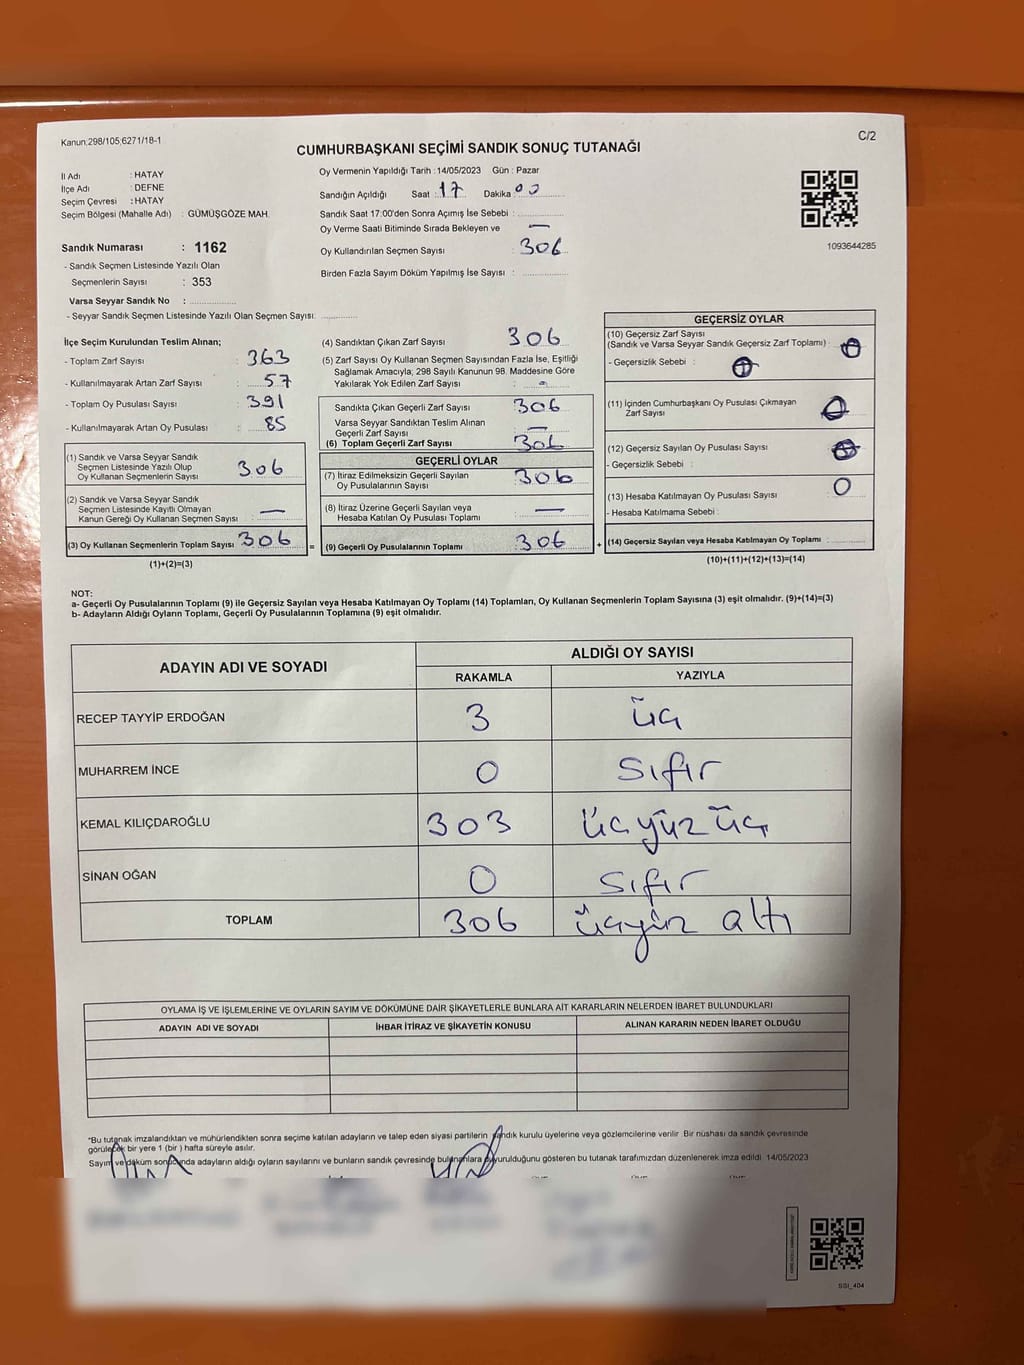 Kanun:298/105;6271/18-1
C/2
CUMHURBAŞKANI SEÇİMİ SANDIK SONUÇ TUTANAĞI
İl Adı : HATAY
İlçe Adı : DEFNE
Seçim Çevresi : HATAY
Seçim Bölgesi (Mahalle Adı) : GÜMÜŞGÖZE MAH.
Sandık Numarası : 1162
- Sandık Seçmen Listesinde Yazılı Olan
Seçmenlerin Sayısı : 353
Varsa Seyyar Sandık No :
- Seyyar Sandık Seçmen Listesinde Yazılı Olan Seçmen Sayısı:
Oy Vermenin Yapıldığı Tarih : 14/05/2023 Gün : Pazar
Sandığın Açıldığı Saat : 17 Dakika 00
Sandık Saat 17:00'den Sonra Açımış İse Sebebi :
Oy Verme Saati Bitiminde Sırada Bekleyen ve —
Oy Kullandırılan Seçmen Sayısı : 306
Birden Fazla Sayım Döküm Yapılmış İse Sayısı :
1093644285
İlçe Seçim Kurulundan Teslim Alınan;
- Toplam Zarf Sayısı : 363
- Kullanılmayarak Artan Zarf Sayısı : 57
- Toplam Oy Pusulası Sayısı : 391
- Kullanılmayarak Artan Oy Pusulası : 85
(1) Sandık ve Varsa Seyyar Sandık
Seçmen Listesinde Yazılı Olup
Oy Kullanan Seçmenlerin Sayısı 306
(2) Sandık ve Varsa Seyyar Sandık
Seçmen Listesinde Kayıtlı Olmayan
Kanun Gereği Oy Kullanan Seçmen Sayısı —
(3) Oy Kullanan Seçmenlerin Toplam Sayısı 306 =
(1)+(2)=(3)
(4) Sandıktan Çıkan Zarf Sayısı 306
(5) Zarf Sayısı Oy Kullanan Seçmen Sayısından Fazla İse, Eşitliği
Sağlamak Amacıyla; 298 Sayılı Kanunun 98. Maddesine Göre
Yakılarak Yok Edilen Zarf Sayısı :
Sandıkta Çıkan Geçerli Zarf Sayısı 306
Varsa Seyyar Sandıktan Teslim Alınan
Geçerli Zarf Sayısı —
(6) Toplam Geçerli Zarf Sayısı 306
GEÇERLİ OYLAR
(7) İtiraz Edilmeksizin Geçerli Sayılan
Oy Pusulalarının Sayısı 306
(8) İtiraz Üzerine Geçerli Sayılan veya
Hesaba Katılan Oy Pusulası Toplamı —
(9) Geçerli Oy Pusulalarının Toplamı 306 +
GEÇERSİZ OYLAR
(10) Geçersiz Zarf Sayısı
(Sandık ve Varsa Seyyar Sandık Geçersiz Zarf Toplamı) :
- Geçersizlik Sebebi :
(11) İçinden Cumhurbaşkanı Oy Pusulası Çıkmayan
Zarf Sayısı
(12) Geçersiz Sayılan Oy Pusulası Sayısı :
- Geçersizlik Sebebi :
(13) Hesaba Katılmayan Oy Pusulası Sayısı : 0
- Hesaba Katılmama Sebebi :
(14) Geçersiz Sayılan veya Hesaba Katılmayan Oy Toplamı :
(10)+(11)+(12)+(13)=(14)
NOT:
a- Geçerli Oy Pusulalarının Toplamı (9) ile Geçersiz Sayılan veya Hesaba Katılmayan Oy Toplamı (14) Toplamları, Oy Kullanan Seçmenlerin Toplam Sayısına (3) eşit olmalıdır. (9)+(14)=(3)
b- Adayların Aldığı Oyların Toplamı, Geçerli Oy Pusulalarının Toplamına (9) eşit olmalıdır.
ADAYIN ADI VE SOYADI
ALDIĞI OY SAYISI
RAKAMLA YAZIYLA
RECEP TAYYİP ERDOĞAN 3 üç
MUHARREM İNCE 0 sıfır
KEMAL KILIÇDAROĞLU 303 üçyüz üç
SİNAN OĞAN 0 sıfır
TOPLAM 306 üçyüz altı
OYLAMA İŞ VE İŞLEMLERİNE VE OYLARIN SAYIM VE DÖKÜMÜNE DAİR ŞİKAYETLERLE BUNLARA AİT KARARLARIN NELERDEN İBARET BULUNDUKLARI
ADAYIN ADI VE SOYADI İHBAR İTİRAZ VE ŞİKAYETİN KONUSU ALINAN KARARIN NEDEN İBARET OLDUĞU
*Bu tutanak imzalandıktan ve mühürlendikten sonra seçime katılan adayların ve talep eden siyasi partilerin sandık kurulu üyelerine veya gözlemcilerine verilir. Bir nüshası da sandık çevresinde
görülecek bir yere 1 (bir) hafta süreyle asılır.
Sayım ve döküm sonucunda adayların aldığı oyların sayılarını ve bunların sandık çevresinde duyurulduğunu gösteren bu tutanak tarafımızdan düzenlenerek imza edildi. 14/05/2023
SSI_404